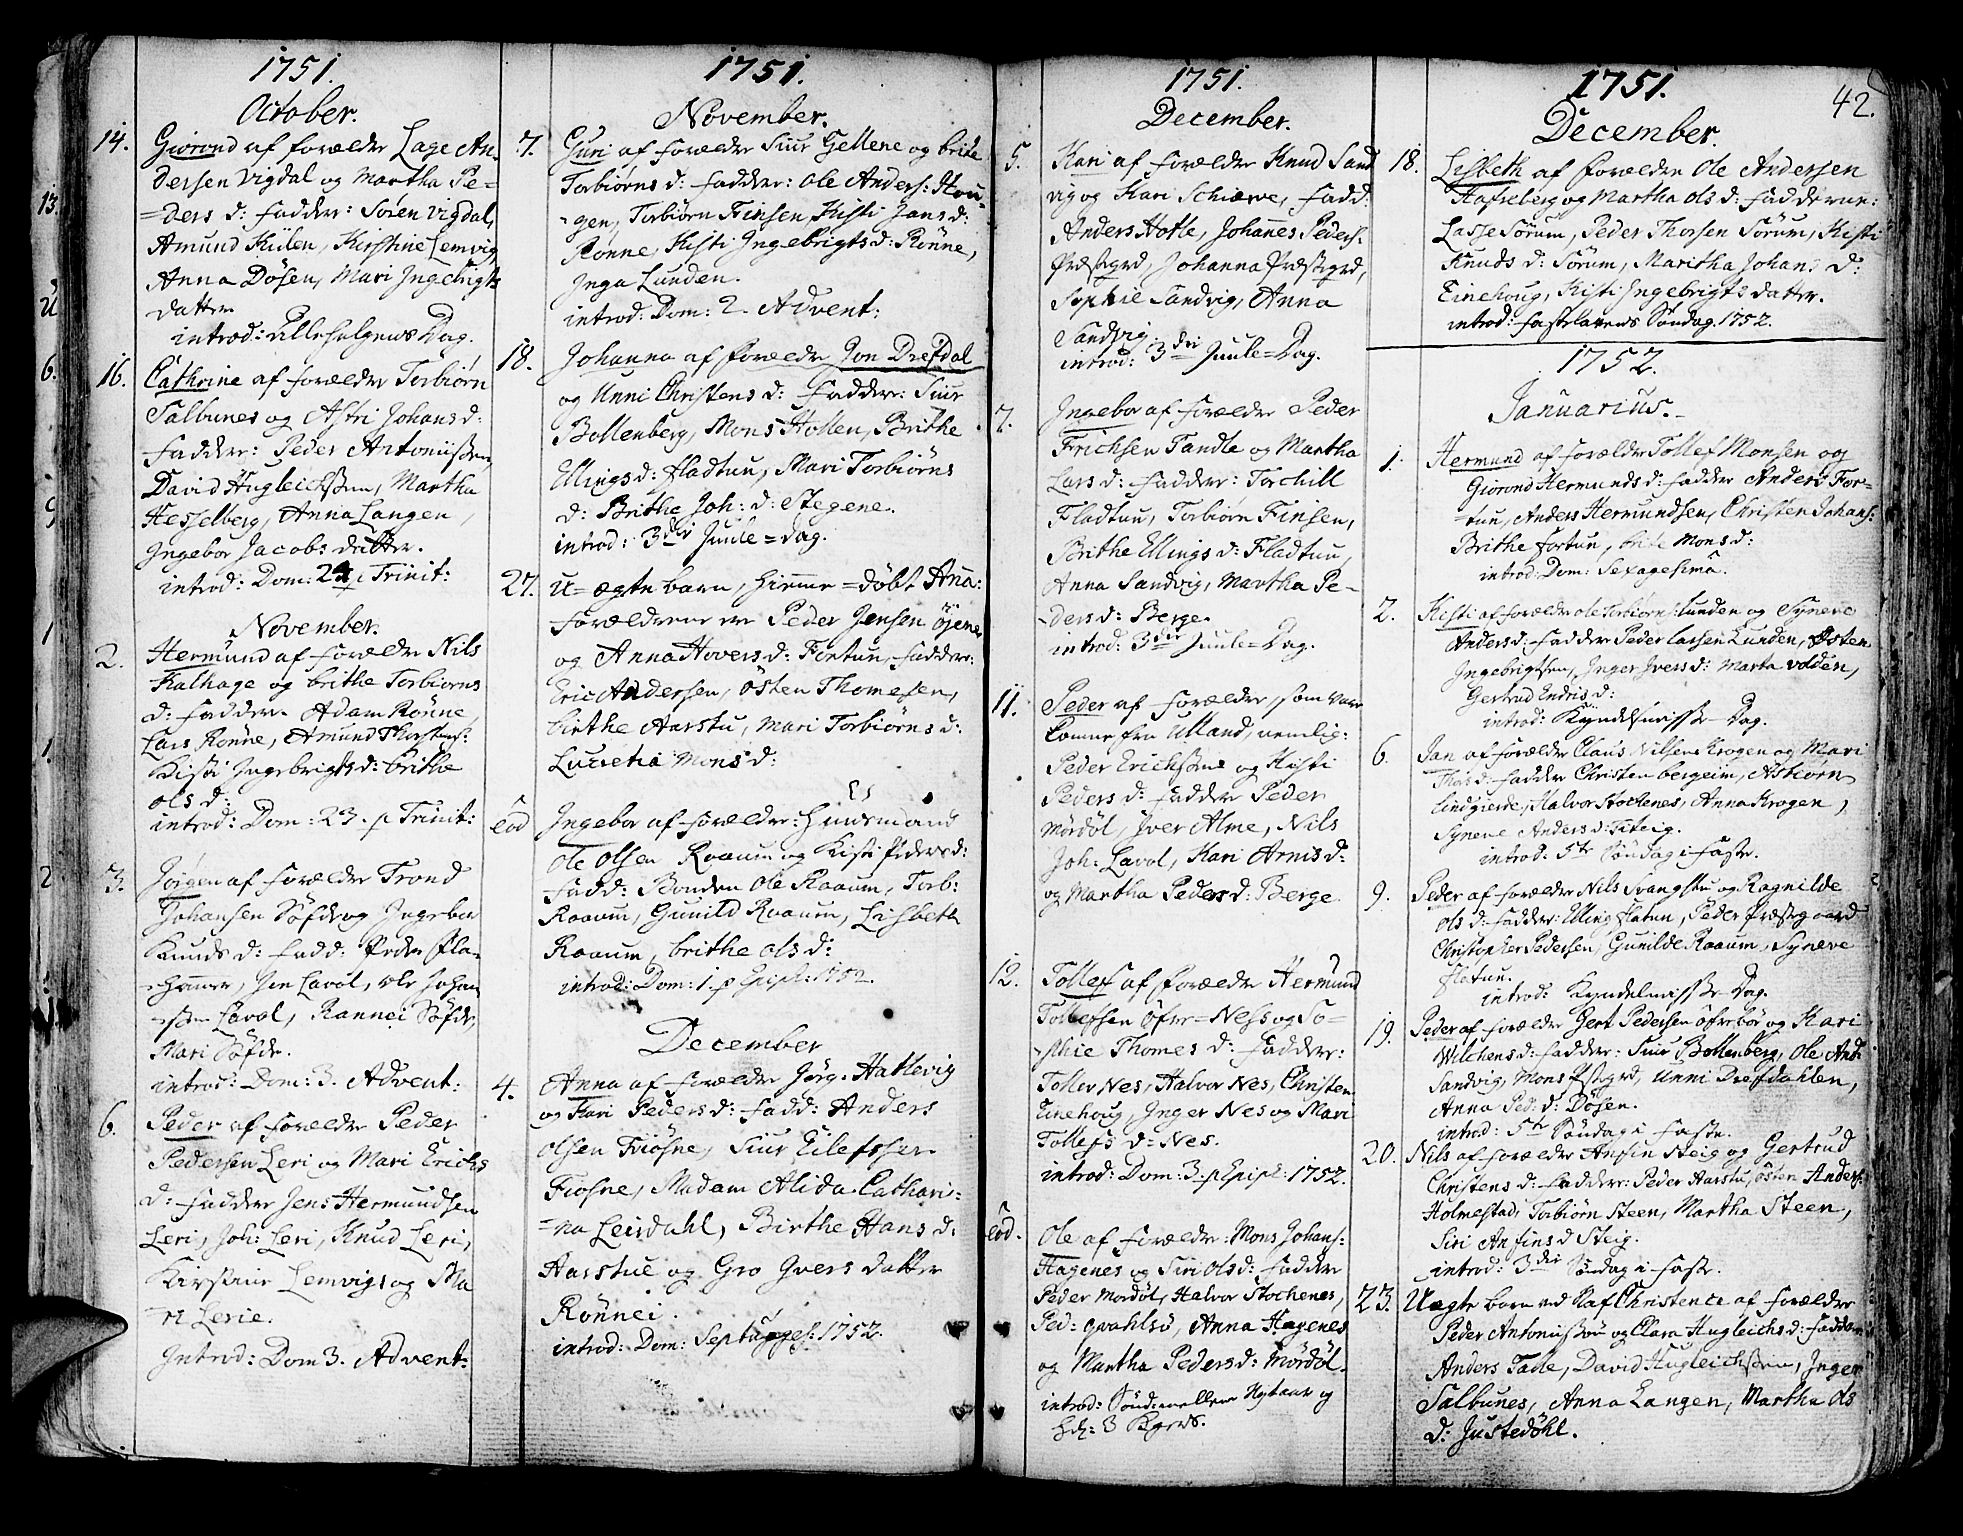 1751.
October.
14. Giørond af forældre Lage An-
dersen Vigdal og Martha Pe-
ders d: fadder: Søren Vigdal,
Amund Külen, Kirstine Lemvig
Anna Døsen, Mari Ingebrigts
datter
introd: Allehelgens Dag.
16. Cathrine af forældre Torbiørn
Salbunes og Astri Johans d:
fadder: Peder Antoniissen,
David Hugleichssen, Martha
Hesselberg, Anna Langen,
Ingebor Jacobs datter.
introd: Dom: 24 p Trinit:
November.
2. Hermund af forældre Nils
Kalhage og brithe Torbiørns
d: fadder. Adam Rønne,
Lars Rønne, Amund Thorstens:
Kisti Ingebrigts d: brithe
ols d:
introd: Dom: 23. p Trinit:
3. Jørgen af forældre Trond
Johansen Søfde og Ingebor
Knuds d: fadd: Peder Fla-
hamer, Jon Lavol, ole Johan
ssen Lavol, Rannei Søfde,
Mari Søfde.
introd: Dom: 3. Advent:
6. Peder af forældre Peder
Pedersen Leri og Mari Erichs
d: fadder Jens Hermundsen
Leri, Joh: Leri, Knud Leri,
Kirstine Lemvigs og Ma
ri Lerie.
Introd: Dom 3. Advent:
1751.
November.
7. Guri af forældre Siur Gellene og brite
Torbiørns d: fadder: Ole Anders: Hau-
gen, Torbiørn Finsen, Kisti Jans d:
Rønne, Kisti Ingebrigts d: Rønne,
Inga Lunden.
introd: Dom: 2. Advent:
18. Johanna af forældre Jon Drefdal
og Unni Christens d: fadder: Siur
Bollenberg, Mons Hollen, Brithe
Ellings d: fladtun, Mari Torbiørns
d: Brithe Joh: d: Stegene.
introd: 3die Juule=dag.
27. U=ægte barn, hieme=døbt Ana:
forældrene er Peder Jensen Øjene
og Anna Hovers d: Fortun, fadder:
Eric Andersen, østen Thomesen,
birthe Aarstu, Mari Torbiørns d:
Lucretia Mons d:
eod Ingebor af forældre: Huusmand
Ole Olsen Raaum og Kisti Peders d:
fadd: Bonden Ole Raaum, Torb:
Raaum, Gunild Raaum, Lisbeth
Raaum, brithe ols d:
introd: Dom: 1. p Epiph: 1752.
December
4. Anna af forældre Jørg. Hatlevig
og Kari Peders d: fadd: Anders
olsen Friøsne, Siur Eilefssen
Fiosne, Madam Alida Cathari-
na Leirdahl, Birthe Hans d:
Aarstue og Gro Gvers datter
Rønnei.
introd: Dom: Septuages: 1752.
1751.
December.
5. Kari af forældre Knud Sand
vig og Kari Schierve, fadd:
Anders Hotle, Johanes Peders:
Præstegrd, Johanna Præstegrd,
Sophie Sandvig, Anna
Sandvig
introd: 3die Juule=Dag.
7. Ingebor af forældre Peder
Frichsen Tandle og Martha
Lars d: fadder: Torchill
Fladtun, Torbiørn Finsen,
Brithe Ellings d: Fladtun,
Anna Sandvig, Martha Pe-
ders d: Berge.
introd: 3die Juule=Dag.
11. Peder af forældre, som vare
komne fra Ulland, nemlig:
Peder Erichssen og Kisti
Peders d: fadder Peder
Mordøl, Iver Alme, Nils
Joh: Lavol, Kari Arnis d:
og Martha Peders d: Berge
12. Tollef af forældre Hermund
Tollefsen Øfre=Ness og So-
phie Thomes d: fadder:
Toller Nes, Halvor Nes, Christen
Einehoug, Inger Nes og Mari
Tollefs d: Nes.
introd: Dom: 3. p Epiph: 1752.
eod. Ole af forældre: Mons Johans:
Hagenes og Siri Ols d: fadder
Peder Mordøl, Halvor Stochenes,
Ped: qvahlsø, Anna Hagenes
og Martha Peders d: Mordøl.
introd: Sønd: mellem Nytaar og
H: 3 Kgers.
1751.
42.
December.
18. Lisbeth af forældre Ole Andersen
Hafseberg og Martha Ols d: fadderne:
Lasse Sørum, Peder Thorsen Sørum, Kisti
Knuds d: Sørum, Maritha Johans d:
Einehoug, Kisti Ingebrigts datter.
introd: fastelavens Søndag. 1752.
1752.
Januarius.
1. Hermund af forældre Tollef Monsen og
Giørond Hermunds d: fadder Anders For-
tun, Anders Hermundsen, Christen Johans:
Brithe Fortun, brite Mons d:
introd: Dom: Sexagesima.
2. Kisti af forældre ole Torbiørns: Lunden og Syneve
Anders d: fadder Peder Larsen Lunden, Østen
Ingebrigtsen, Inger Ivers d: Marta Volden,
Gertrud Endris d:
introd: Kyndelmisse Dag.
6. Jan af forældre Claus Nilsens Krogen og Mari
Tho:s d: fadder Christen bergeim, Asbiørn
Lindgierde, Halvor Stochenes, Anna Krogen,
Synene Anders d: Titeig.
introd: 5te Søndag i faste.
9. Peder af forældre Nils Svangstu og Ragnilde
ols d: fadder: Elling flatun, Peder Præstegaard
Christopher Pedersen, Gunilde Raaum, Syneve
flatun.
introd: Kyndelmisse Dag.
19. Peder af forældre Gert Pedersen øfrebø og Kari
Wilchens d: fadder: Siur Bollenberg, Ole And:
Sandvig, Mons Pstegrd, Unni Drefdahlen,
Anna Ped: d: Døsen.
introd: 5te Søndag i faste.
20. Nils af forældre Ansin Steig og Gertrud
Christens d: fadder: Peder Aarstu, østen Anders:
Holmestad, Torbiørn Steen, Martha Steen,
Siri Anfins d Steig.
introd: 3die Søndag i faste.
23. Uægte barn ved Naf Christence af forældre
Peder Antoniissøn og Clara Hugleichs d: faddere
Anders Tade, David Hugleichssen, Inger
Salbunes, Anna Langen, Martha Ols
d: Justedøhl.